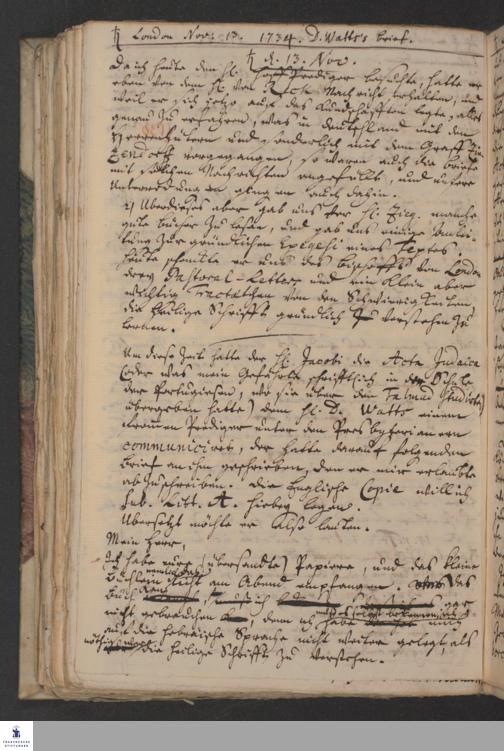 ♄ London Nov. 13. 1734. D. Watts's brief.
♄ d. 13. Nov.
Da ich heute den H. Hoff Prediger besuchte, hatte er
eben von dem H. von Nachricht erhalten, und
weil er sich jetzo auf das legte, alles
genau zu erfahren, was in Deutschland mit den
Herrenhutern und sonderlich mit dem Graff Zin-
zendorff vorgegangen, so waren auch die briefe
mit solchen Nachrichten angefüllt, und unsere
Unterredungen gingen auch dahin.
2) Überdieses aber gab uns der H. Zieg. manche
gute bücher zu lesen, und gab uns einige Anlei-
tung zur gründlichen Exegesi eines Textes.
Heute schenkte er uns des bischoffs von London
drey Pastoral-Letters und ein klein aber
wichtig Tractätchen von den Schwierigkeiten,
die heilige Schrifft gründlich zu verstehen zu
lernen.
Um diese Zeit hatte der H. Jacobi die Acta Judaica
(oder was mein Gefährte schrifftlich in der Schule
der Portugiesen, wo sie über den Talmud studirten,
übergeben hatte) dem H. D. Watts einem
frommen Prediger unter den Presbyterianern
communiciret, der hatte darauf folgenden
brief an ihn geschrieben, den er mir erlaubte
abzuschreiben. Die Englische Copie will ich
sub Litt. A. hierbey legen.
Übersetzt möchte er also lauten.
Mein Herr,
Ich habe eure (übersandte) Papiere, und das kleine
Büchlein am Abend empfangen. Das
Buch kan ich gar
nicht gebrauchen, denn ich habe mich
auf die hebräische Sprache nicht weiter gelegt, als
nöthig war die heilige Schrifft zu verstehen.
FRANCKESCHE
STIFTUNGEN